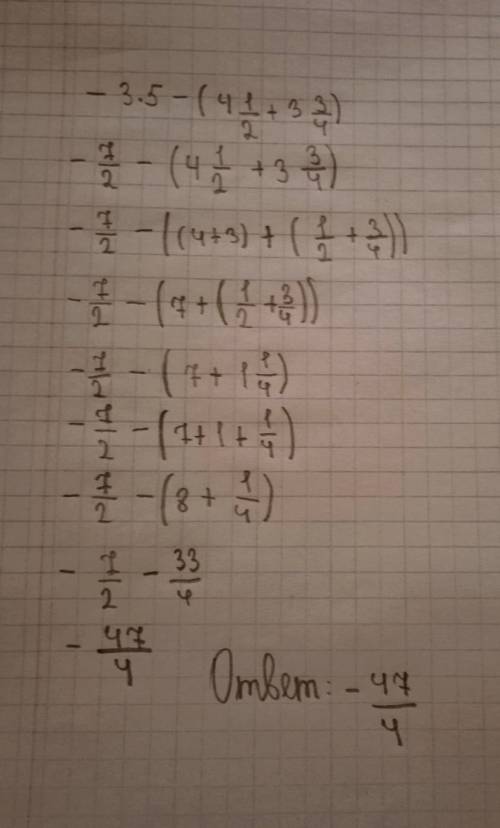 - 3.5 - (4 1/2 + 3 3/4)
- 7/2 - (4 1/2 + 3 3/4)
- 7/2 - ((4+3) + (1/2 + 3/4))
- 7/2 - (7 + (1/2 + 3/4))
- 7/2 - (7 + 1 1/4)
- 7/2 - (7 + 1 + 1/4)
- 7/2 - (8 + 1/4)
- 7/2 - 33/4
- 47/4
Ответ: - 47/4